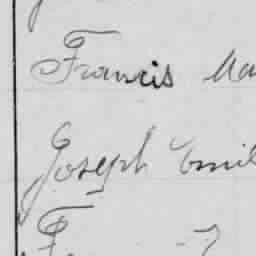 Francis Ma
Joseph Emil